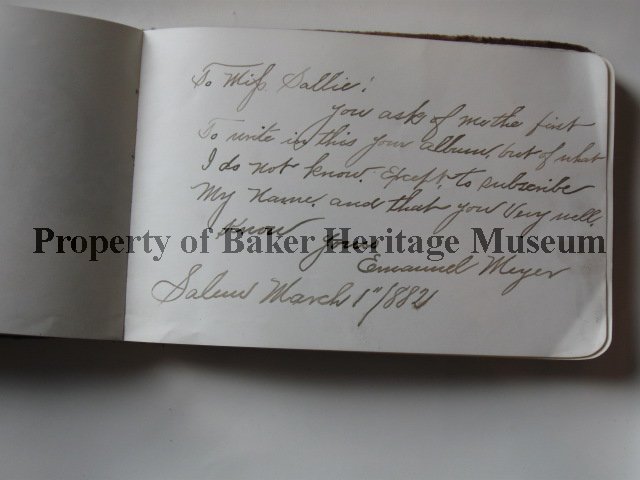 To Miss. Sallie!
You ask of me the first
To write in this your album, but of what
I do not know. Except, to subscribe
My Name. and that you Very well.
Know Yours
Property of Baker Heritage Museum
Emanuel Meyer
Salem March 1" 1882